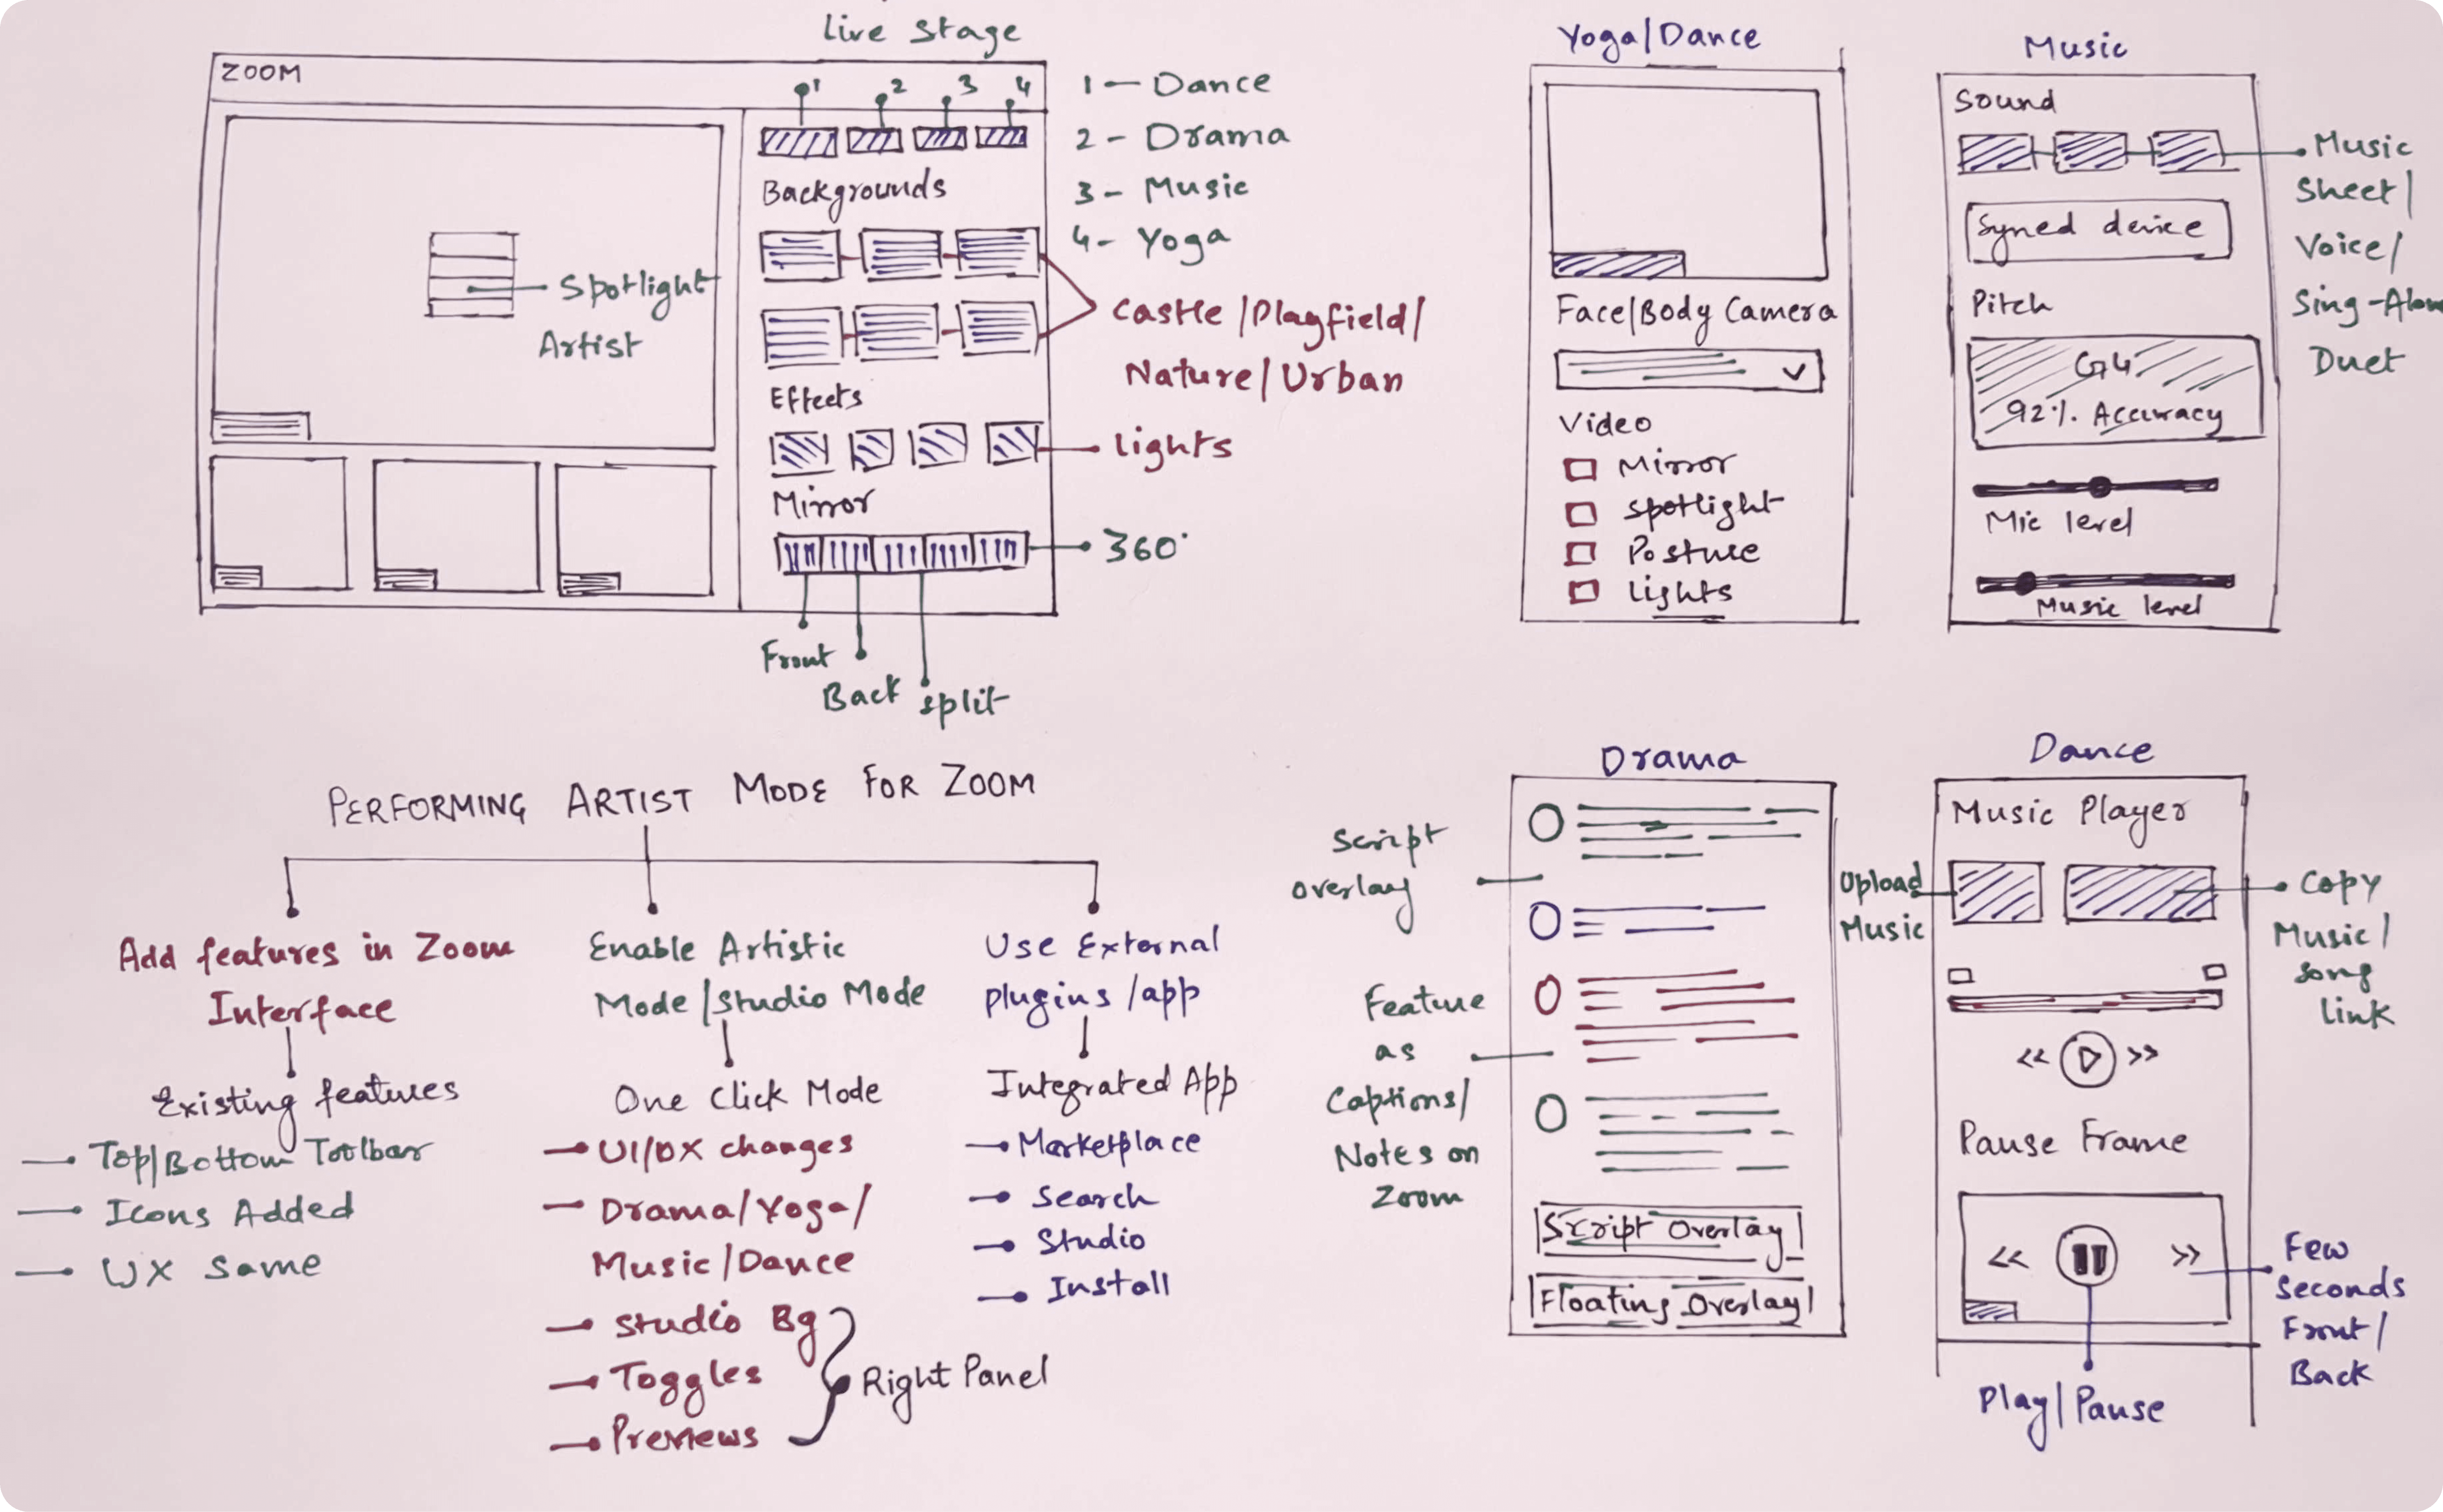 Live Stage
ZOOM
1 2 3 4
1 - Dance
2 - Drama
3 - Music
4 - Yoga
Spotlight
Artist
Backgrounds
Castle / Playfield /
Nature / Urban
Effects
Lights
Mirror
360°
Front
Back
Split
Yoga/Dance
Face/Body Camera
Video
Mirror
Spotlight
Posture
Lights
Music
Sound
Music
Sheet/
Voice/
Sing-Alon
Duet
Syned device
Pitch
G4
92% Accuracy
Mic level
Music level
PERFORMING ARTIST MODE FOR ZOOM
Add features in Zoom
Interface
Existing features
Top/Bottom Toolbar
Icons Added
UX Same
Enable Artistic
Mode/Studio Mode
One Click Mode
UI/UX changes
Drama/Yoga/
Music/Dance
Studio Bg
Toggles
Previews
Right Panel
Use External
plugins /app
Integrated App
Marketplace
Search
Studio
Install
Drama
Script
overlay
Feature
as
Captions/
Notes on
Zoom
Script Overlay
Floating Overlay
Dance
Music Player
Upload
Music
Copy
Music/
Song
link
<< >>
Pause Frame
<< >>
Few
Seconds
Front/
Back
Play/Pause